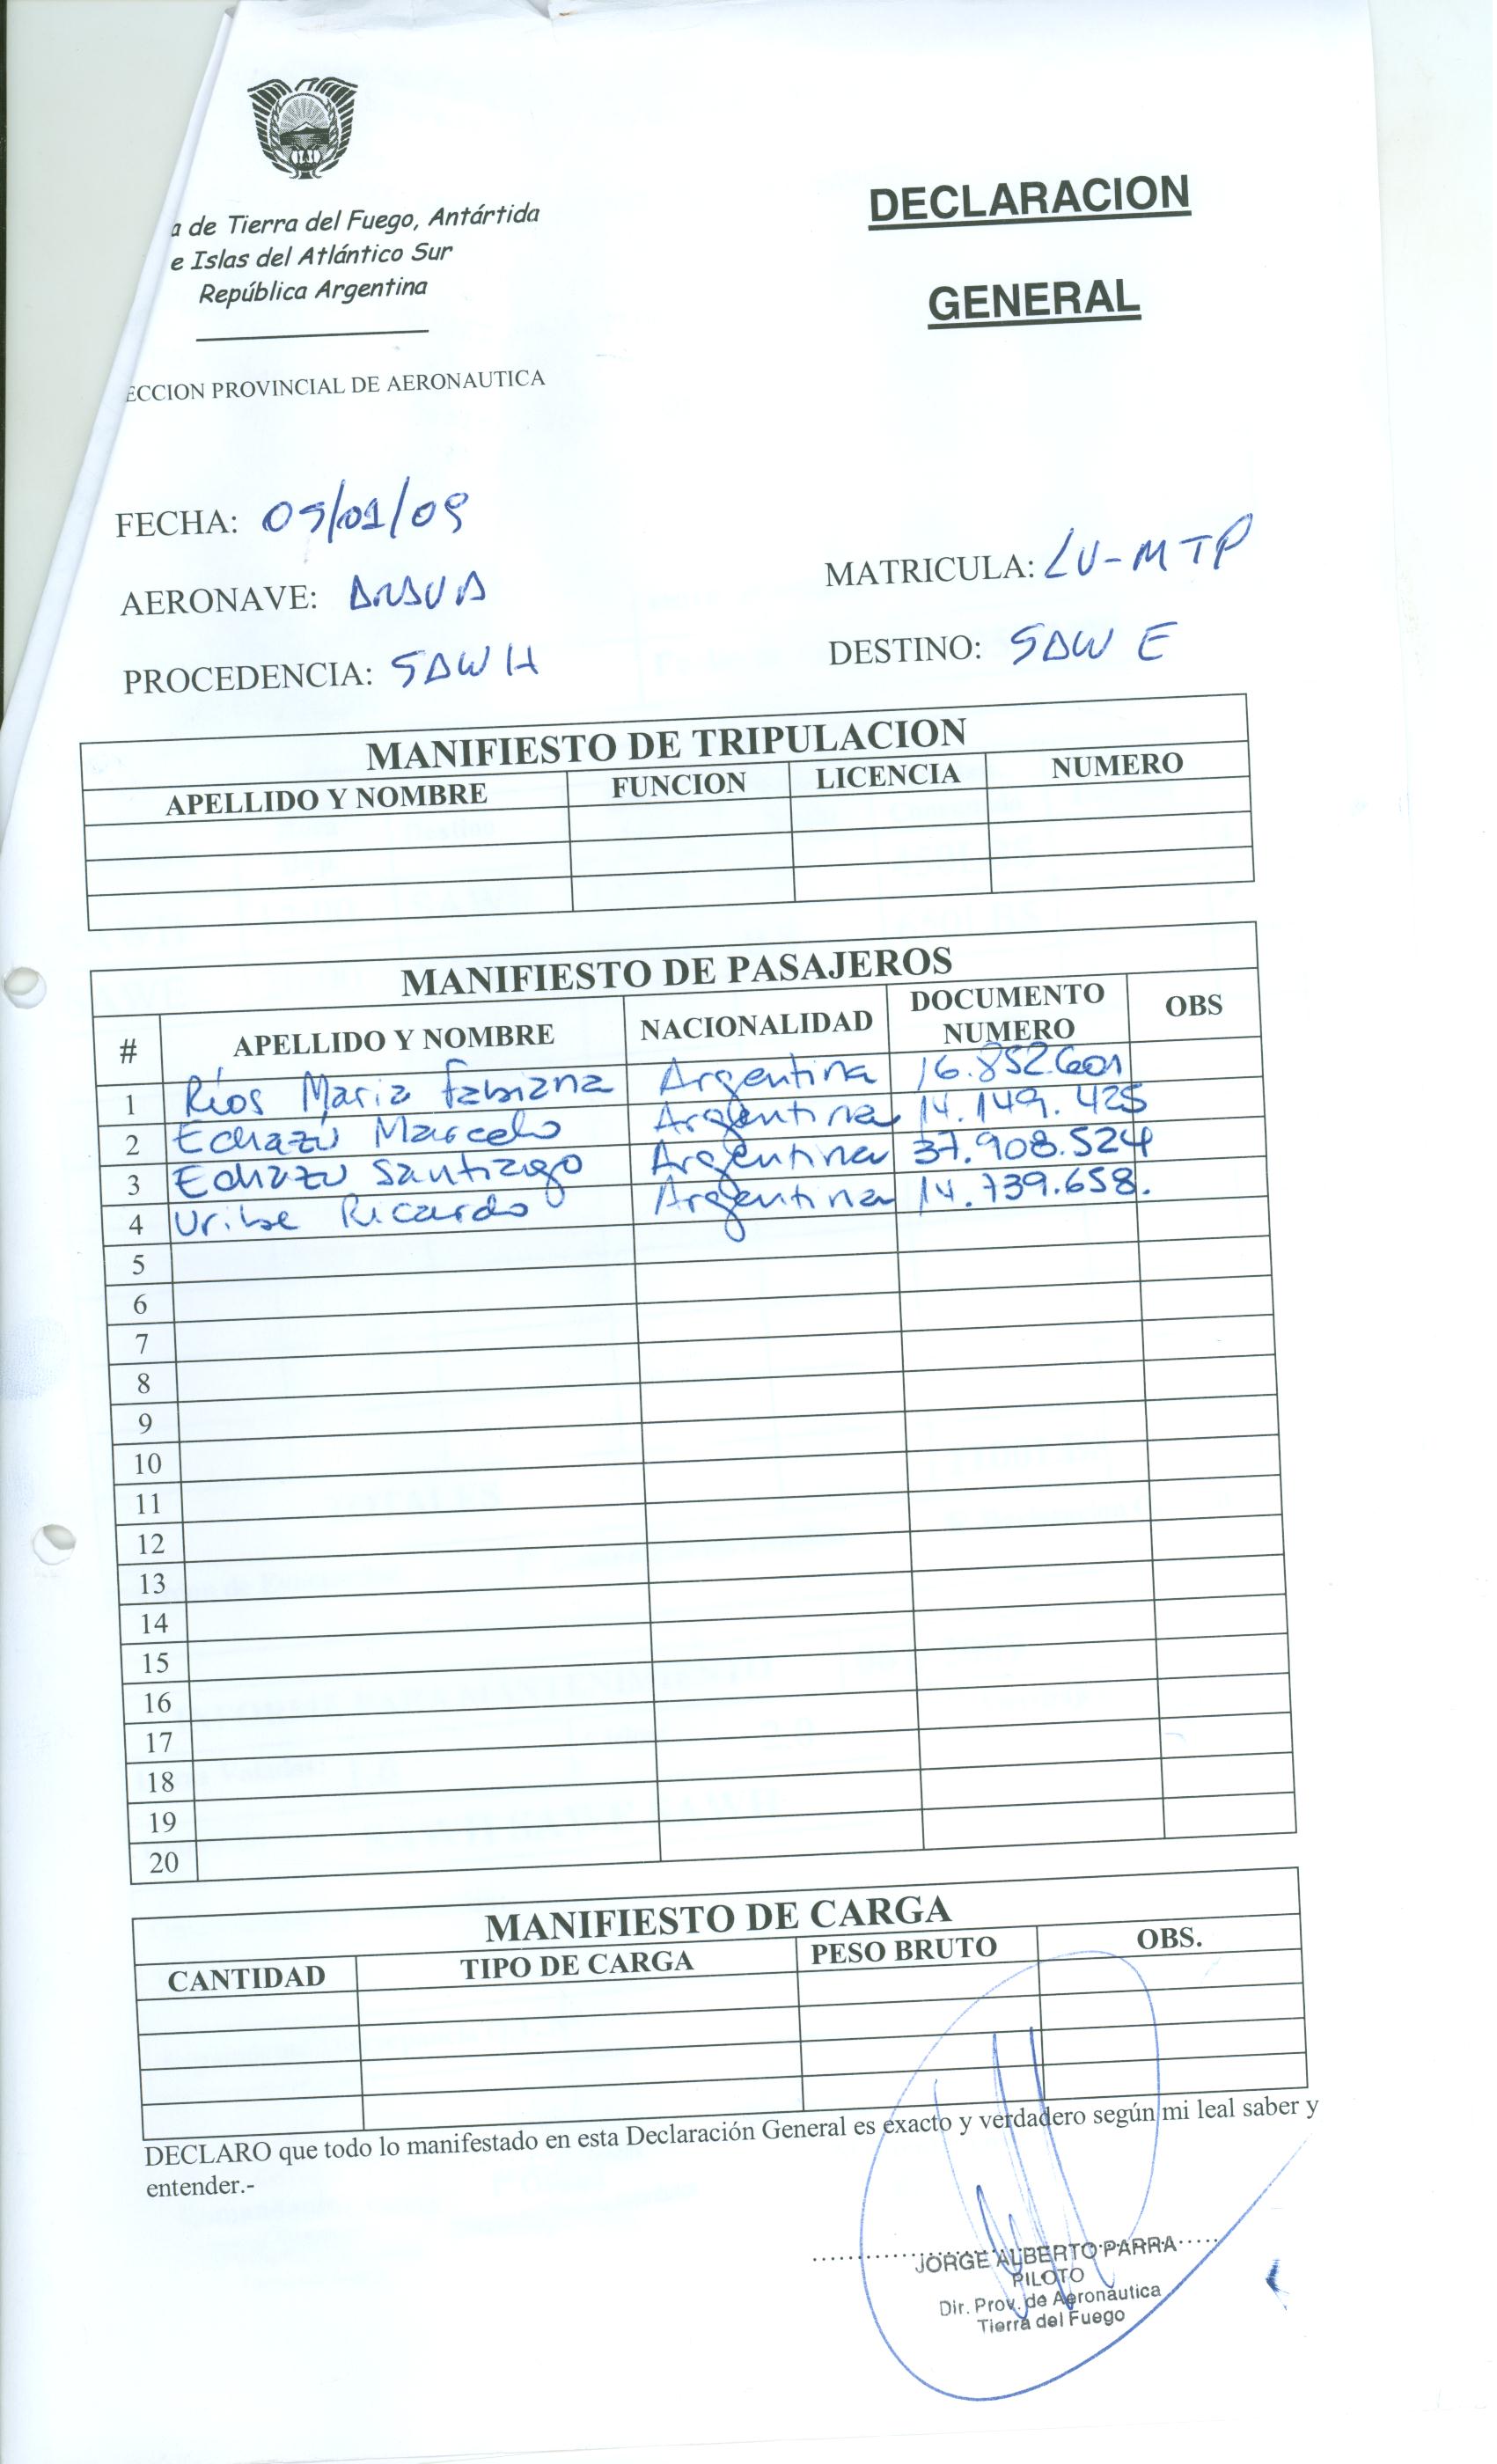 a de Tierra del Fuego, Antártida
e Islas del Atlántico Sur
República Argentina
ECCION PROVINCIAL DE AERONAUTICA
DECLARACION
GENERAL
FECHA: 09/01/09
AERONAVE: ARAVA
MATRICULA: LV-MTP
PROCEDENCIA: SAWH
DESTINO: SAWE
MANIFIESTO DE TRIPULACION
APELLIDO Y NOMBRE FUNCION LICENCIA NUMERO
MANIFIESTO DE PASAJEROS
# APELLIDO Y NOMBRE NACIONALIDAD DOCUMENTO NUMERO OBS
1 Ríos Maria Fabiana Argentina 16.852.601
2 Echazú Marcelo Argentina 14.149.425
3 Echazú Santiago Argentina 37.908.524
4 Uribe Ricardo Argentina 14.739.658.
5
6
7
8
9
10
11
12
13
14
15
16
17
18
19
20
MANIFIESTO DE CARGA
CANTIDAD TIPO DE CARGA PESO BRUTO OBS.
DECLARO que todo lo manifestado en esta Declaración General es exacto y verdadero según mi leal saber y
entender.-
JORGE ALBERTO PARRA
PILOTO
Dir. Prov. de Aeronáutica
Tierra del Fuego